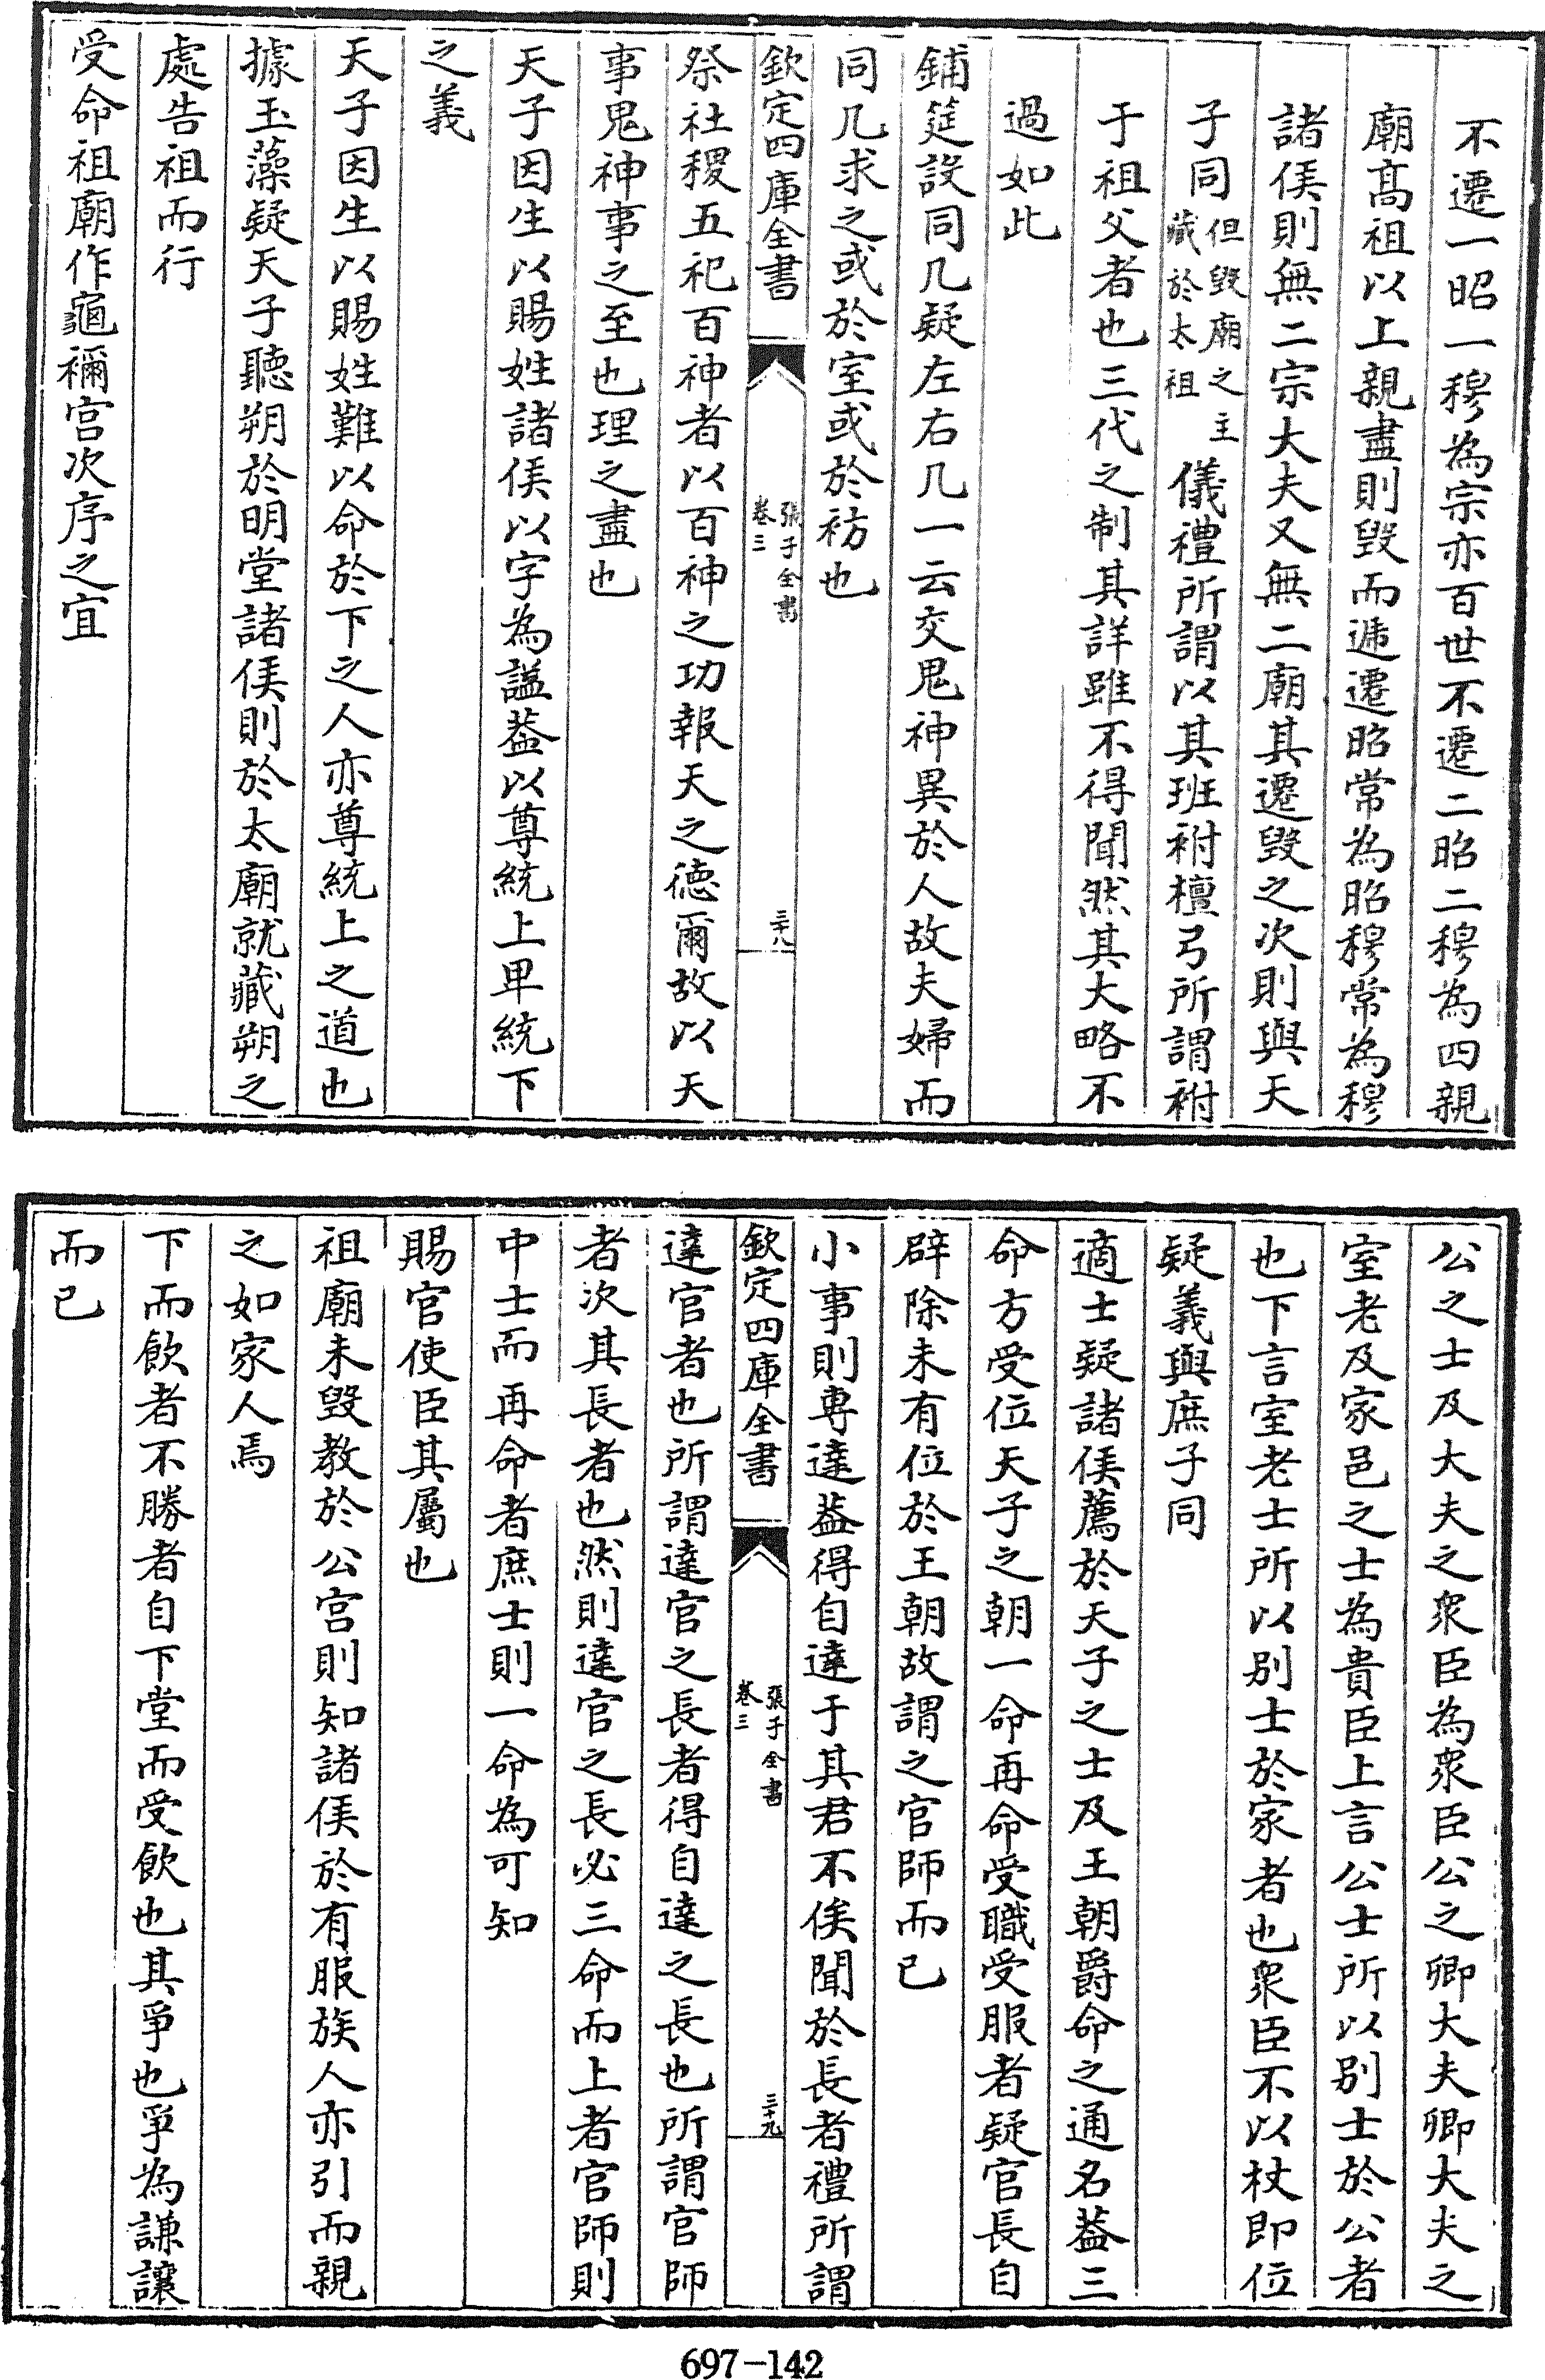 不遷一昭一穆為宗亦百世不遷二昭二穆為四親
廟髙祖以上親盡則毀而遞遷昭常為昭穆常為穆
諸侯則無二宗大夫又無二廟其遷毀之次則與天
子同但毀廟之主藏於太祖儀禮所謂以其班祔檀弓所謂祔
于祖父者也三代之制其詳雖不得聞然其大略不
過如此
鋪筵設同几疑左右几一云交鬼神異於人故夫婦而
同几求之或於室或於祊也
欽定四庫全書
張子全書
卷三
三十八
祭社稷五祀百神者以百神之功報天之徳爾故以天
事鬼神事之至也理之盡也
天子因生以賜姓諸侯以字為諡葢以尊統上卑統下
之義
天子因生以賜姓難以命於下之人亦尊統上之道也
據玉藻疑天子聽朔於明堂諸侯則於太廟就藏朔之
處告祖而行
受命祖廟作龜禰宫次序之宜
公之士及大夫之衆臣為衆臣公之卿大夫卿大夫之
室老及家邑之士為貴臣上言公士所以別士於公者
也下言室老士所以別士於家者也衆臣不以杖即位
疑義與庶子同
適士疑諸侯薦於天子之士及王朝爵命之通名葢三
命方受位天子之朝一命再命受職受服者疑官長自
辟除未有位於王朝故謂之官師而已
小事則專達葢得自達于其君不俟聞於長者禮所謂
欽定四庫全書
張子全書
卷三
三十九
達官者也所謂達官之長者得自達之長也所謂官師
者次其長者也然則達官之長必三命而上者官師則
中士而再命者庶士則一命為可知
賜官使臣其屬也
祖廟未毀教於公宫則知諸侯於有服族人亦引而親
之如家人焉
下而飲者不勝者自下堂而受飲也其爭也爭為謙讓
而已
697-142